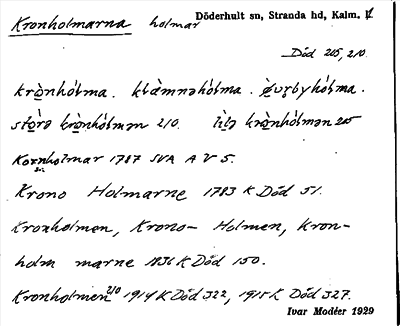 Kronholmarna holmar Döderhult sn, Stranda hd, Kalm. l.
Död 205, 210.
krònhól̀ma. klàmnəhól̀ma.
stó̤rə krònhól̀mən 210. lìlə krònhól̀mən 205
Kornholmar 1787 SVA A V 5.
Krono Holmarne 1783 K Död 51.
Kronholmen, Krono- Holmen, Kron-
holm marne 1836 K Död 150.
Kronholmen 210 1914 K Död 322, 1915 K Död 327.
Ivar Modéer 1929